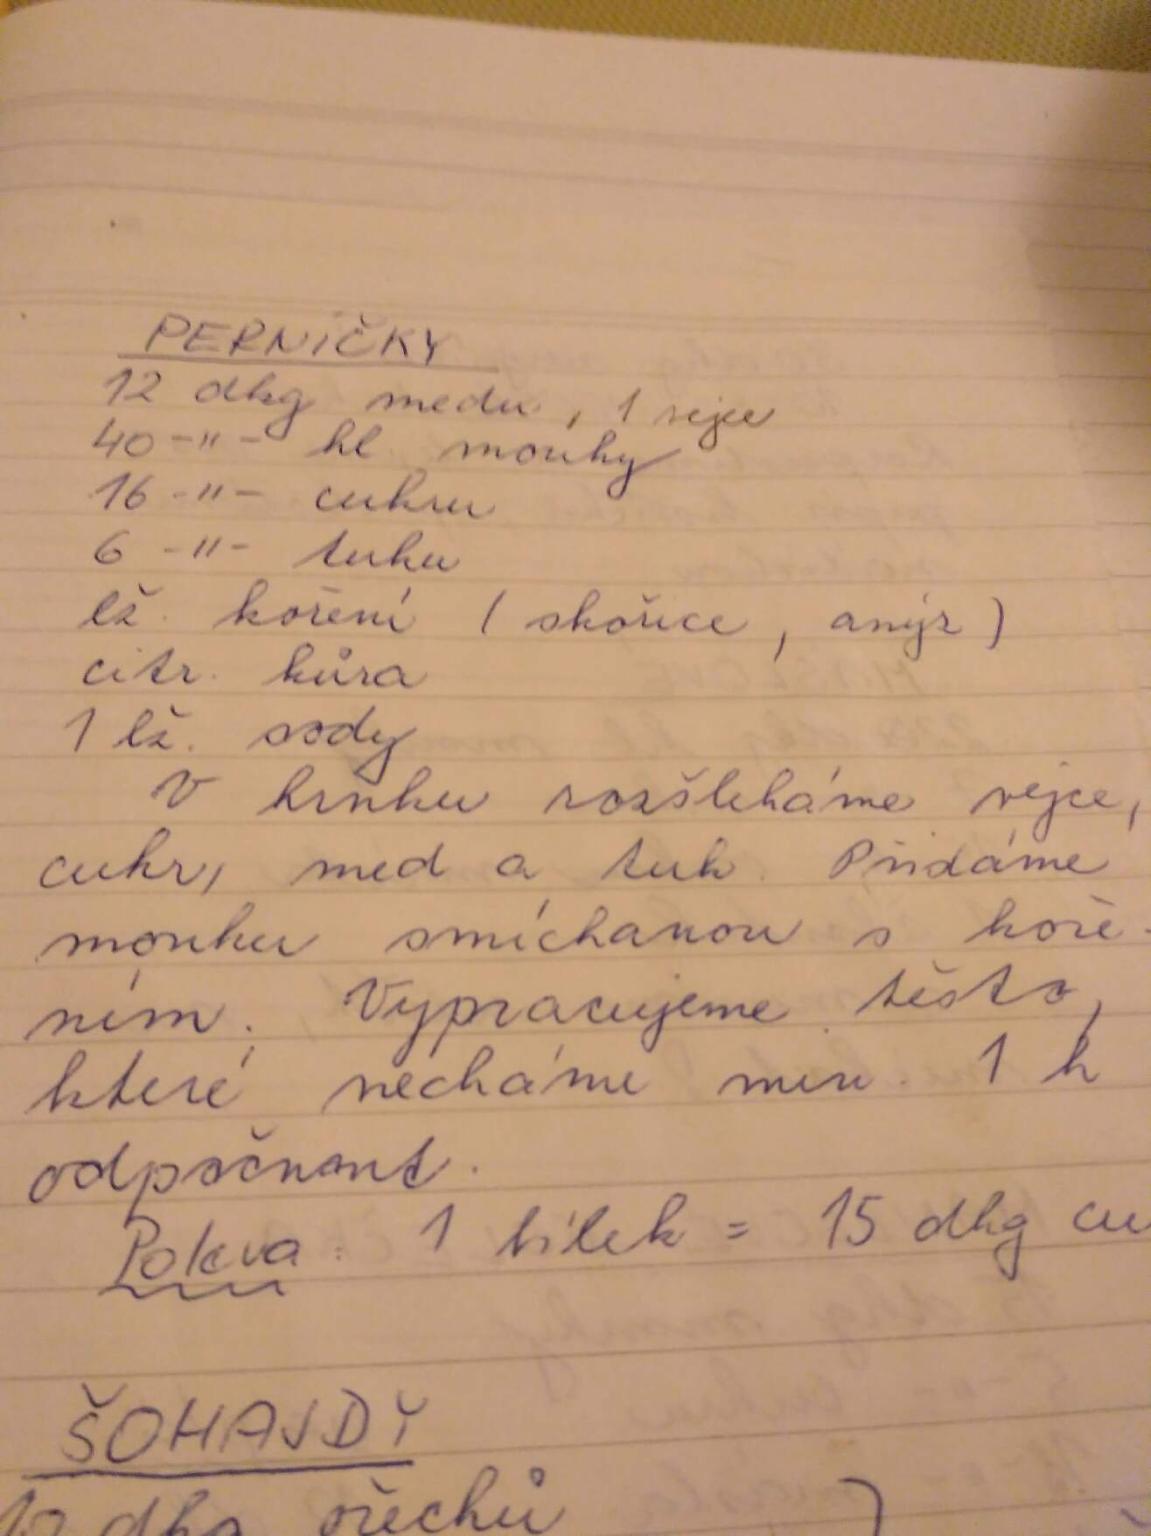 PERNÍČKY
12 dkg medu, 1 vejce
40 -"- hl. mouky
16 -"- cukru
6 -"- tuku
lž. koření (skořice, anýz)
citr. kůra
1 lž. sody
V hrnku rozšleháme vejce,
cukr, med a tuk. Přidáme
mouku smíchanou s koře-
ním. Vypracujeme těsto,
které necháme min. 1 h
odpočnout.
Poleva: 1 bílek = 15 dkg cu
ŠOHAJDY
dkg ořechů